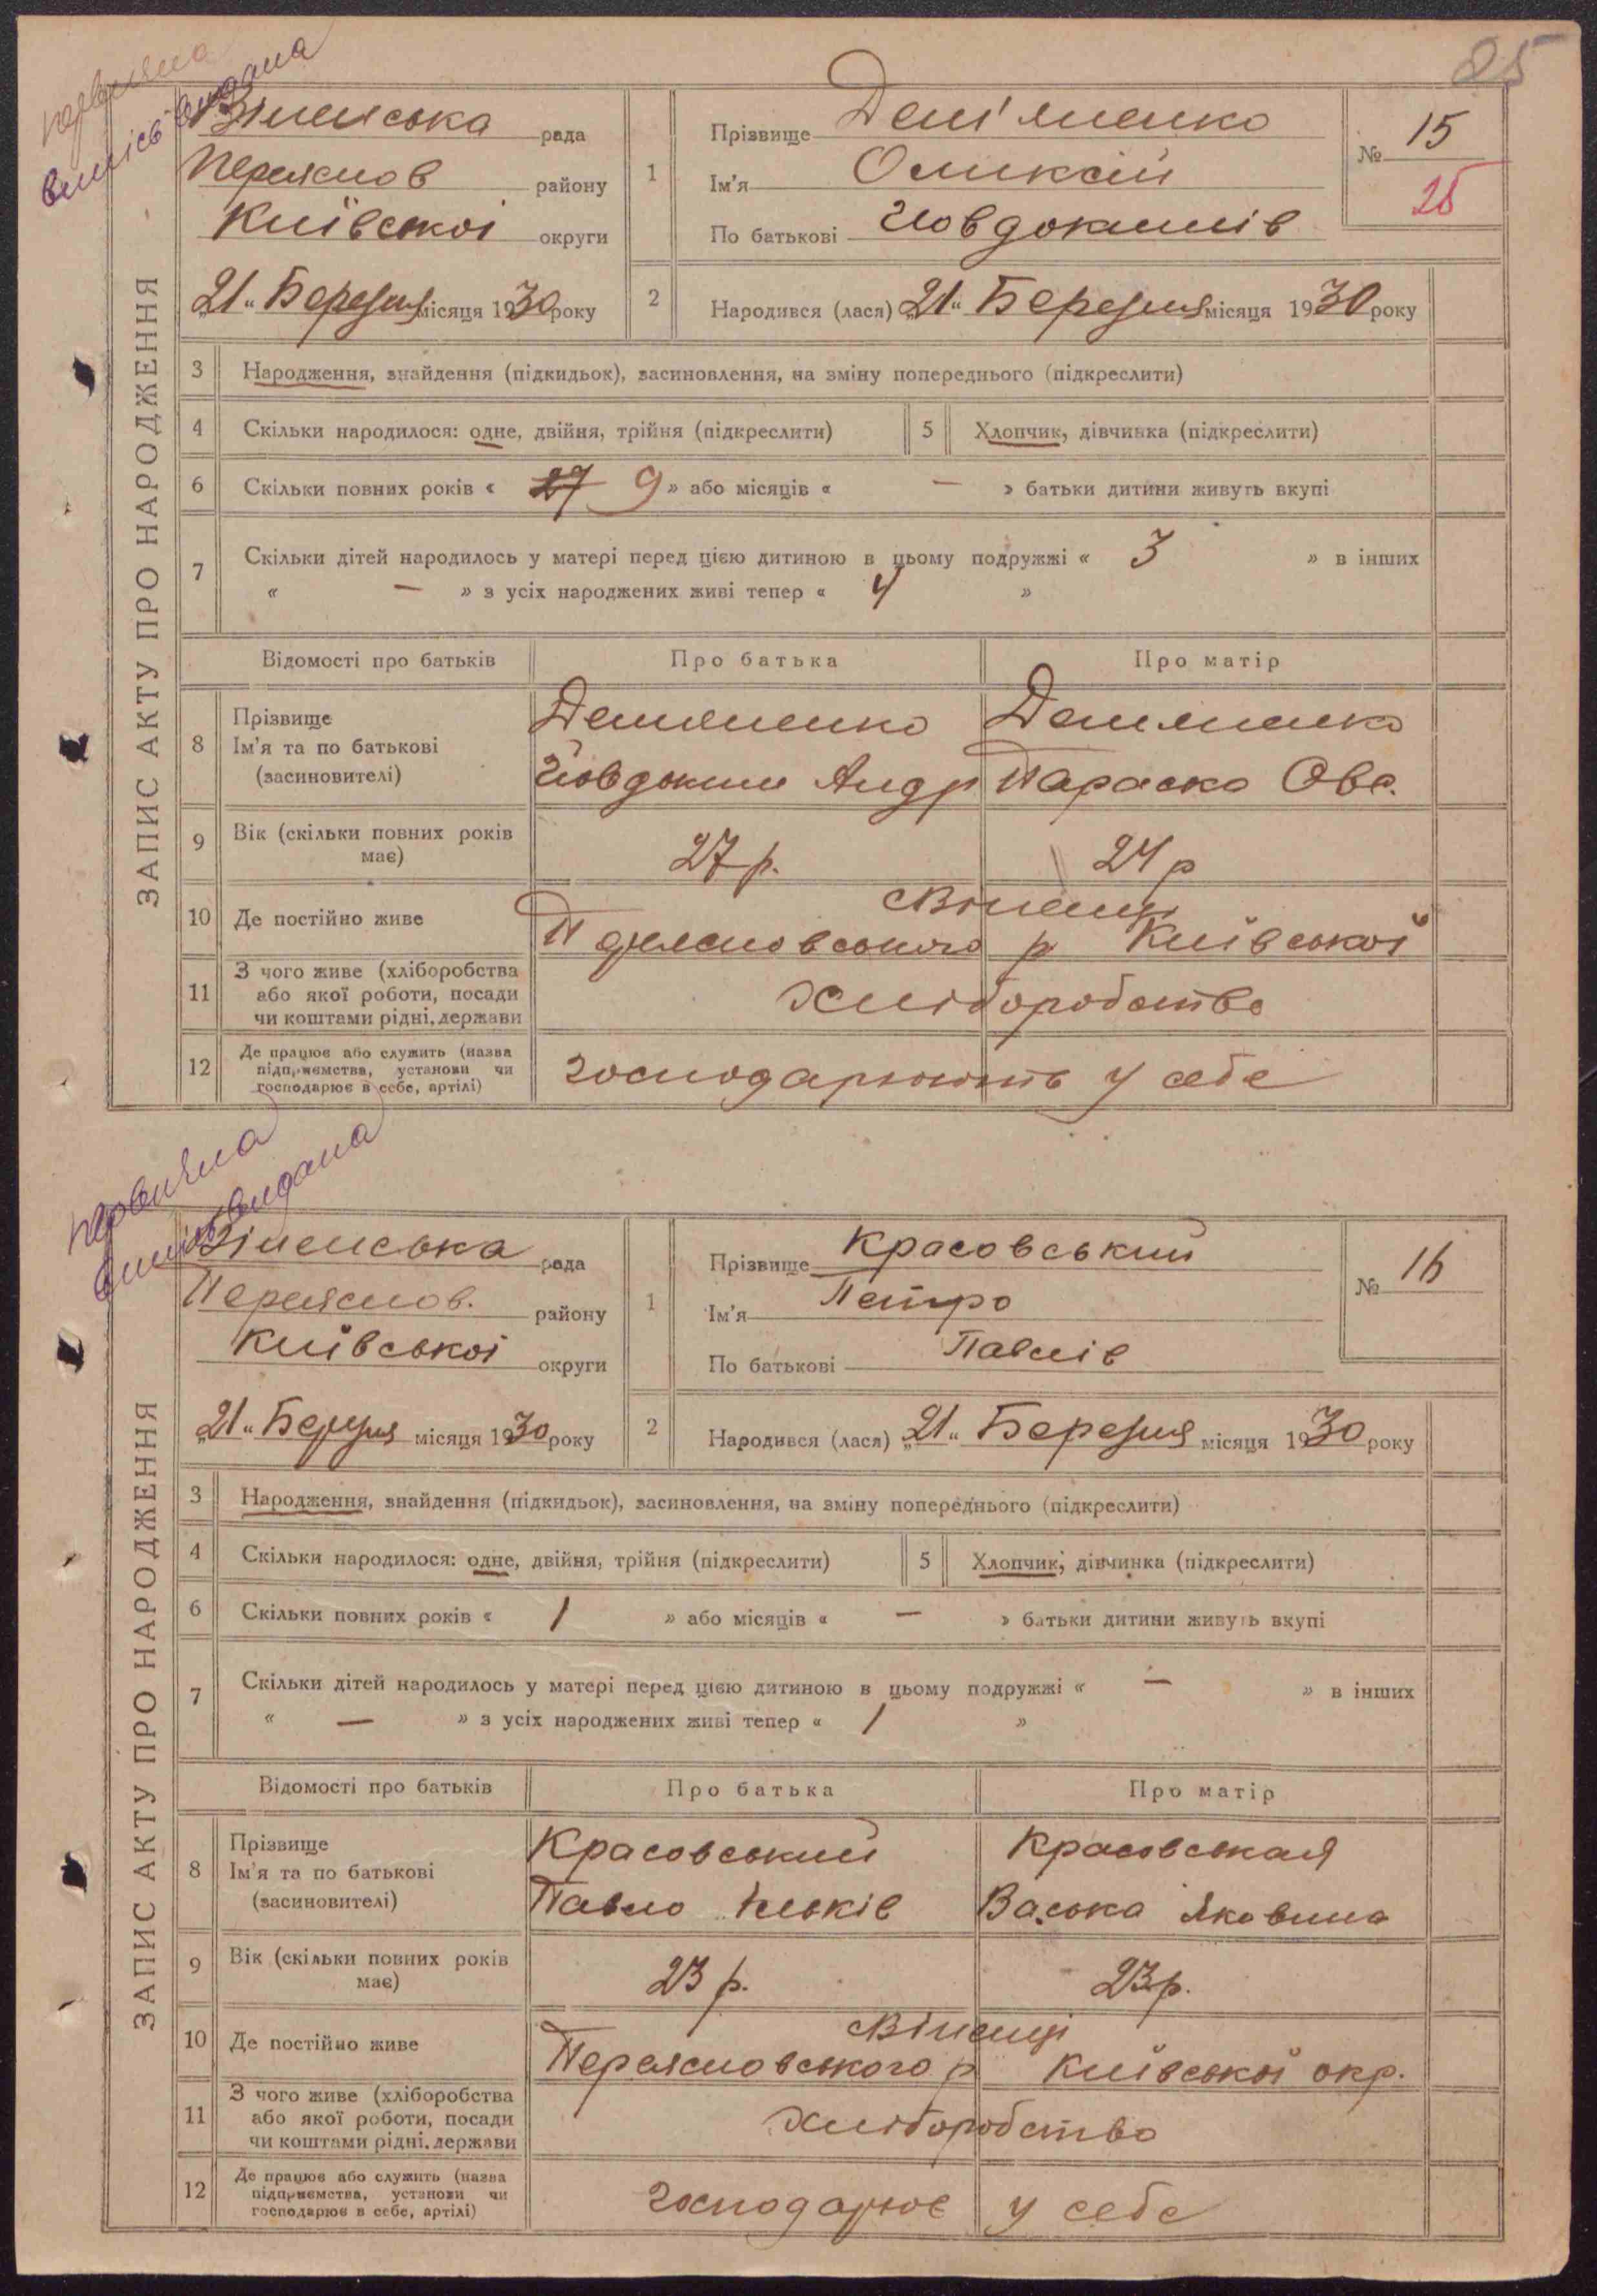 85
первична
виписъ видана
Віненська рада
Переяслов району
Київської округи
„21“ Березня місяця 1930 року
1
Прізвище Дем'яненко
Ім'я Оликсій
По батькові Йовдокимів
№ 15
25
2
Народився (лася) „21“ Березня місяця 1930 року
ЗАПИС АКТУ ПРО НАРОДЖЕННЯ
3 Народження, знайдення (підкидьок), засиновлення, на зміну попереднього (підкреслити)
4 Скільки народилося: одне, двійня, трійня (підкреслити)
5 Хлопчик, дівчинка (підкреслити)
6 Скільки повних років « 27 9 » або місяців « — » батьки дитини живуть вкупі
7 Скільки дітей народилось у матері перед цією дитиною в цьому подружжі « 3 » в інших
« — » з усіх народжених живі тепер « 4 »
Відомості про батьків Про батька Про матір
8 Прізвище
Ім'я та по батькові
(засиновителі)
Демяненко Демяненко
Йовдоким Андр Параска Овс.
9 Вік (скільки повних років
має)
27 р. 24 р
10 Де постійно живе
с Віненці
Переясловського р Київської
11 З чого живе (хліборобства
або якої роботи, посади
чи коштами рідні, держави
Хліборобство
12 Де працює або служить (назва
підприємства, установи чи
господарює в себе, артілі)
господарюють у себе
первична
виписъ видана
Віненська рада
Переяслов. району
Київської округи
„21“ Березня місяця 1930 року
1
Прізвище Красовський
Ім'я Петро
По батькові Павлів
№ 16
2
Народився (лася) „21“ Березня місяця 1930 року
ЗАПИС АКТУ ПРО НАРОДЖЕННЯ
3 Народження, знайдення (підкидьок), засиновлення, на зміну попереднього (підкреслити)
4 Скільки народилося: одне, двійня, трійня (підкреслити)
5 Хлопчик, дівчинка (підкреслити)
6 Скільки повних років « 1 » або місяців « — » батьки дитини живуть вкупі
7 Скільки дітей народилось у матері перед цією дитиною в цьому подружжі « — » в інших
« — » з усіх народжених живі тепер « 1 »
Відомості про батьків Про батька Про матір
8 Прізвище
Ім'я та по батькові
(засиновителі)
Красовський Красовская
Павло Васька Яковина
9 Вік (скільки повних років
має)
23 р. 23 р.
10 Де постійно живе
с Віненці
Переясловського р Київської окр.
11 З чого живе (хліборобства
або якої роботи, посади
чи коштами рідні, держави
Хліборобство
12 Де працює або служить (назва
підприємства, установи чи
господарює в себе, артілі)
господарює у себе